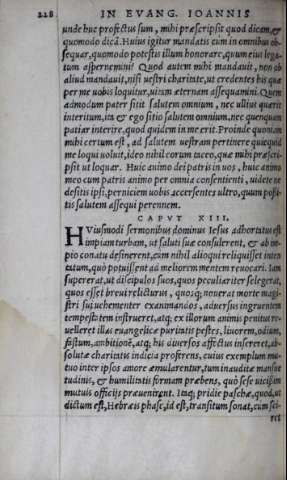 228 IN EVANG. IOANNIS
unde huc profectus sum, mihi præscripsit quod dicam, &
quomodo dicã. Huius igitur mandatis cum in omnibus ob-
sequar, quomodo potestis illum honorare, quum eius lega-
tum aspernemini? Quod autem mihi mandauit, non ob
aliud mandauit, nisi uestri charitate, ut credentes his quæ
per me uobis loquitur, uitam æternam assequamini. Quem
admodum pater sitit salutem omnium, nec ullius quærit
interitum, ita & ego sitio salutem omnium, nec quenquam
patiar interire, quod quidem in me erit. Proinde quoniam
mihi certum est, ad salutem uestram pertinere quicquid
me loqui uoluit, ideo nihil eorum taceo, quæ mihi præscri-
psit ut loquar. Huic animo dei patris in uos, huic animo
meo cum patris animo per omnia consentienti, uidete ne
desitis ipsi, perniciem uobis accersentes ultro, quum possi-
tis salutem assequi perennem.
CAPVT XIII.
HVIusmodi sermonibus dominus Iesus adhortatus est
impiam turbam, ut saluti suæ consulerent, & ab im-
pio conatu desinerent, cum nihil alioqui reliquisset inten-
tatum, quo potuissent ad meliorem mentem reuocari. Iam
supererat, ut discipulos suos, quos peculiariter selegerat,
quos esset breui relicturus, quosq; nouerat morte magi-
stri sui uehementer exanimandos, aduersus ingruentem
tempestatem instrueret, atq; ex illorum animis penitus re-
uelleret illas euangelicæ puritatis pestes, liuorem, odium,
fastum, ambitionẽ, atq; his diuersos affectus insereret, ab-
solutæ charitatis indicia proferens, cuius exemplum mu-
tuo inter ipsos amore æmularentur, tum inauditæ mansue
tudinis, & humilitatis formam præbens, quo sese uicissim
mutuis officijs præuenirent. Itaq; pridie paschæ, quod, ut
dictum est, Hebræis phasc, id est, transitum sonat, cum sci-
ret